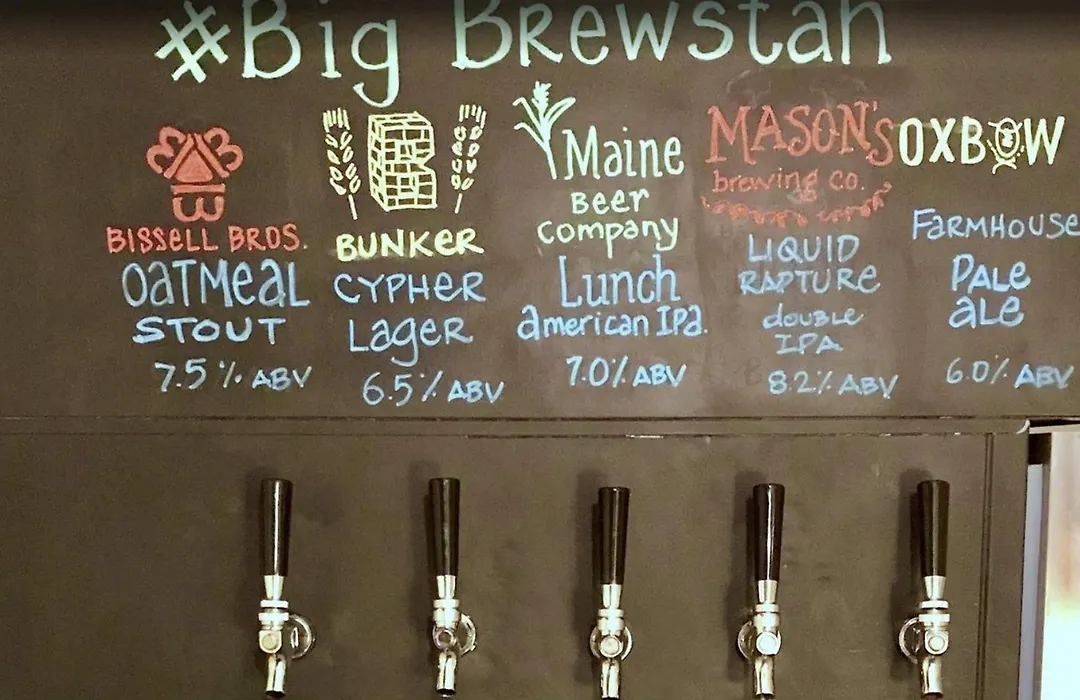 #Big Brewstah
BISSELL BROS.
OATMEAL
STOUT
7.5% ABV
BUNKER
CYPHER
Lager
6.5% ABV
Maine
Beer
Company
Lunch
american IPa.
7.0% ABV
MASON'S
brewing co.
LIQUID
RAPTURE
double
IPA
8.2% ABV
OXBOW
FARMHOUSE
PALE
ale
6.0% ABV